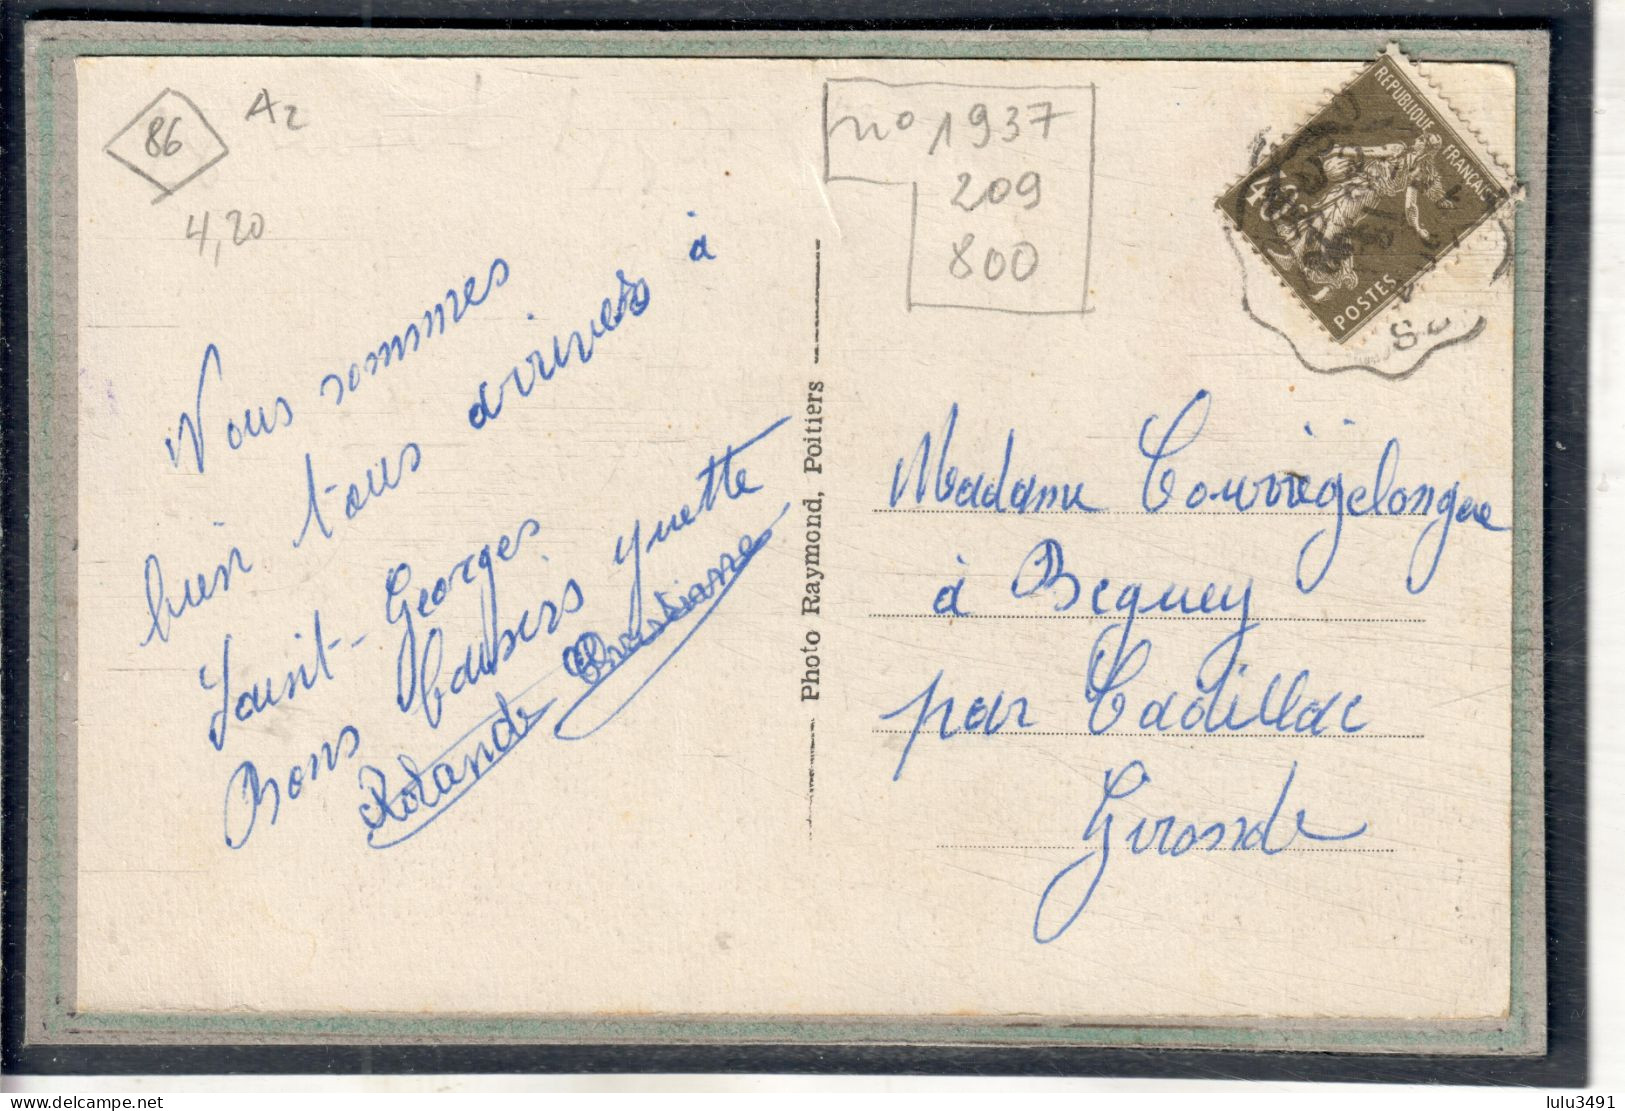 86
A2
4,20
Nous sommes
bien tous arrivés à
Saint-Georges
Bons baisers Yvette
Rolande Christiane
Photo Raymond, Poitiers
no 1937
209
800
REPUBLIQUE FRANÇAISE
40c
POSTES
Madame Courrègelongue
à Beguey
par Cadillac
Gironde
delcampe.net
lulu3491